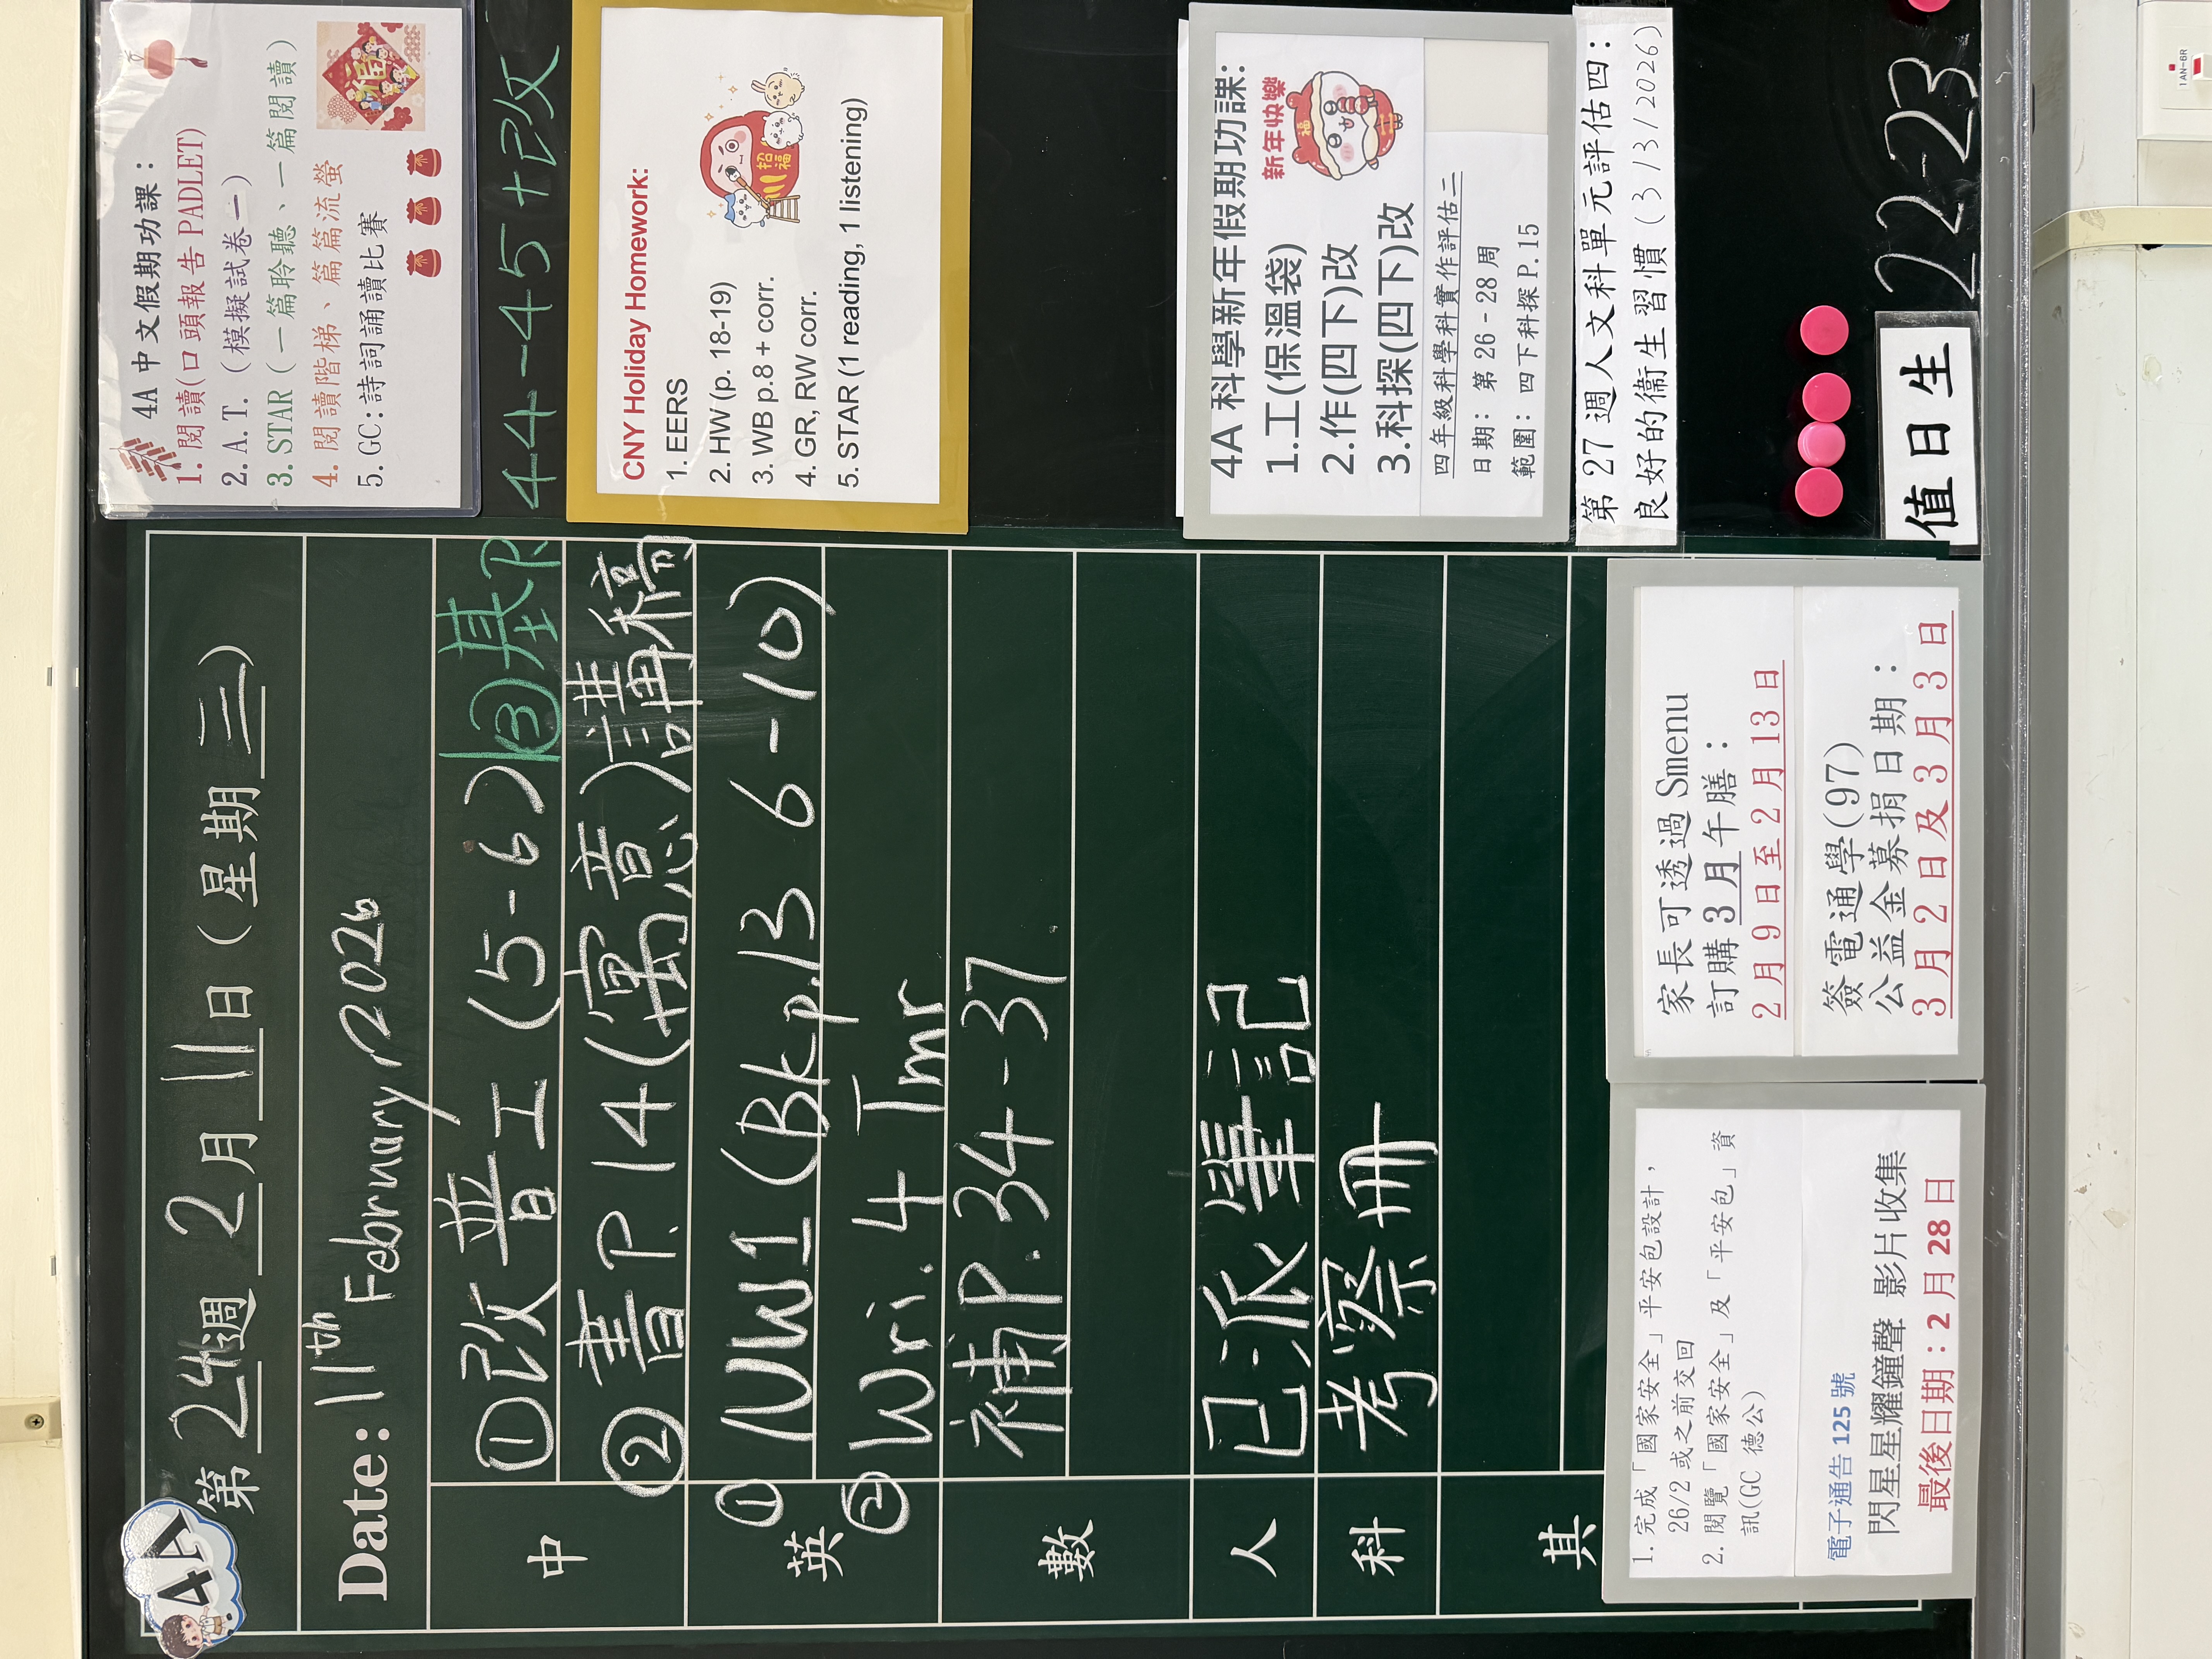 4A
第 24 週 2 月 11 日 (星期 三)
Date: 11th February 2026
中
①改普工 (5-6) ③基P.44-45+改
②書P.14(寓意)講稿
英
① NW1 (Bk p.13 6-10)
② Wri. 4 Imr
數
補P.34-37.
人
已派筆記
科
考察冊
其
1. 完成「國家安全」平安包設計,
26/2 或之前交回
2. 閱覽「國家安全」及「平安包」資
訊(GC 德公)
電子通告 125 號
閃星星耀鐘聲 影片收集
最後日期: 2 月 28 日
家長可透過 Smenu
訂購 3 月午膳:
2 月 9 日至 2 月 13 日
簽電通學(97)
公益金募捐日期:
3 月 2 日及 3 月 3 日
4A 中文假期功課:
1. 閱讀(口頭報告 PADLET)
2. A.T. (模擬試卷一)
3. STAR (一篇聆聽、一篇閱讀)
4. 閱讀階梯、篇篇流螢
5. GC:詩詞誦讀比賽
福
CNY Holiday Homework:
1. EERS
2. HW (p. 18-19)
3. WB p.8 + corr.
4. GR, RW corr.
5. STAR (1 reading, 1 listening)
招福
4A 科學新年假期功課:
1.工(保溫袋)
2.作(四下)改
3.科探(四下)改
新年快樂
福
四年級科學科實作評估二
日期: 第 26 - 28 周
範圍: 四下科探 P.15
第 27 週人文科單元評估四:
良好的衞生習慣 (3/3/2026)
值日生
22-23